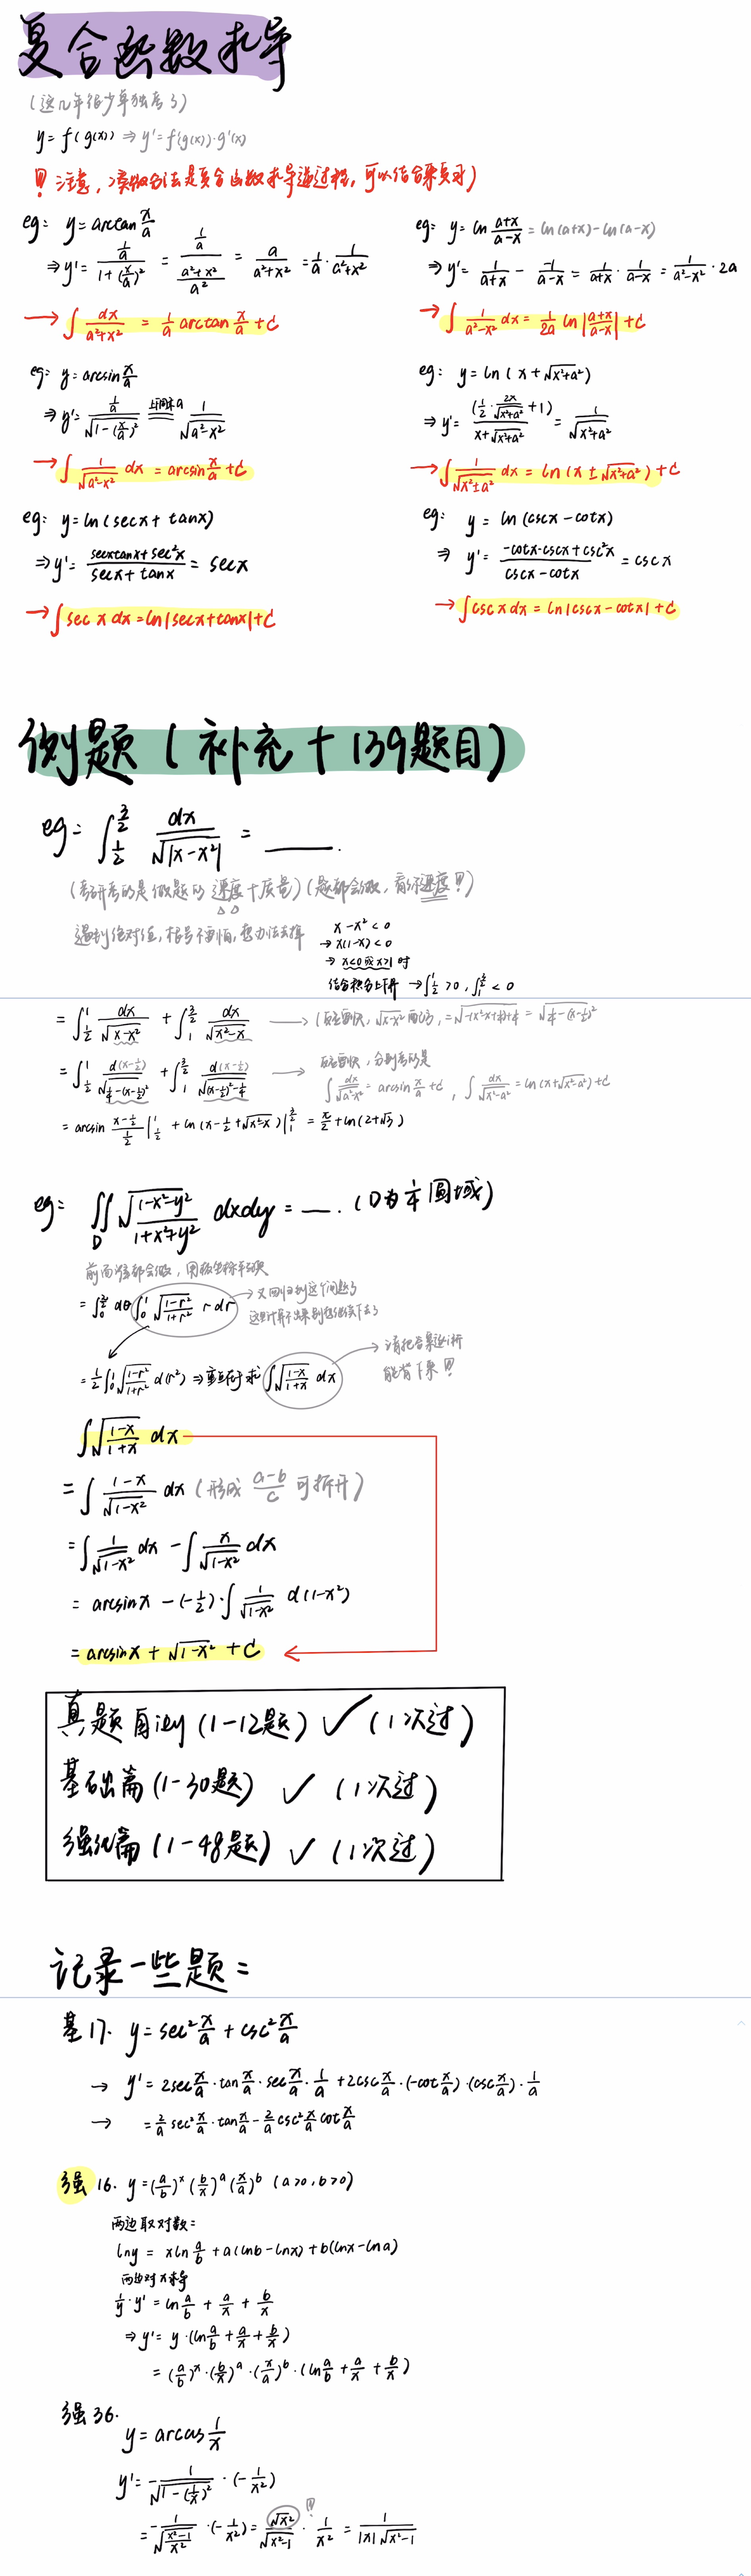 复合函数求导
(这几年很少单独考了)
y = f(g(x)) ⇒ y' = f'(g(x))·g'(x)
!! 注意, 凑微分法是复合函数求导逆过程, 可以结合乘负号)
eg: y = arctan x/a
⇒ y' = (1/a)/(1+(x/a)²) = (1/a)/((a²+x²)/a²) = a/(a²+x²) = 1/a · 1/(a²+x²)
→ ∫ dx/(a²+x²) = 1/a arctan x/a + C
eg: y = ln (a+x)/(a-x) = ln(a+x) - ln(a-x)
⇒ y' = 1/(a+x) - (-1)/(a-x) = 1/(a+x) · 1/(a-x) = 1/(a²-x²) · 2a
→ ∫ 1/(a²-x²) dx = 1/2a ln|(a+x)/(a-x)| + C
eg: y = arcsin x/a
⇒ y' = (1/a)/√(1-(x/a)²) =(上下同乘a)= 1/√(a²-x²)
→ ∫ 1/√(a²-x²) dx = arcsin x/a + C
eg: y = ln(x+√(x²+a²))
⇒ y' = (1/2 · 2x/√(x²+a²) + 1)/(x+√(x²+a²)) = 1/√(x²+a²)
→ ∫ 1/√(x²±a²) dx = ln(x±√(x²+a²)) + C
eg: y = ln(secx + tanx)
⇒ y' = (secxtanx + sec²x)/(secx + tanx) = secx
→ ∫ sec x dx = ln|secx+tanx| + C
eg: y = ln(cscx - cotx)
⇒ y' = (-cotx·cscx + csc²x)/(cscx - cotx) = cscx
→ ∫ csc x dx = ln|cscx - cotx| + C
例题 (补充 + 139题目)
eg: ∫_{1/2}^{3/2} dx/√|x-x²| = ____.
(考研考的是做题的速度+质量) (题都会做, 看你速度!!)
遇到绝对值, 根号不要怕, 想办法去掉
x - x² < 0
→ x(1-x) < 0
→ x<0 或 x>1 时
结合积分上下界 → ∫_{1/2}^{1} > 0, ∫_{1}^{3/2} < 0
= ∫_{1/2}^{1} dx/√(x-x²) + ∫_{1}^{3/2} dx/√(x²-x) → (反应要快, √(x-x²) 配方, = √(-(x²-x+1/4)+1/4) = √(1/4-(x-1/2)²)
= ∫_{1/2}^{1} d(x-1/2)/√(1/4-(x-1/2)²) + ∫_{1}^{3/2} d(x-1/2)/√((x-1/2)²-1/4) → 反应要快, 分别考的是
∫ dx/√(a²-x²) = arcsin x/a + C, ∫ dx/√(x²-a²) = ln(x+√(x²-a²)) + C
= arcsin (x-1/2)/(1/2) |_{1/2}^{1} + ln(x-1/2+√(x²-x)) |_{1}^{3/2} = π/2 + ln(2+√3)
eg: ∬_D √((1-x²-y²)/(1+x²+y²)) dxdy = __. (D为 1/4 圆域)
前面你都会做, 用极坐标转换
= ∫_0^{π/2} dθ ∫_0^1 √((1-r²)/(1+r²)) r dr → 又回归到这个问题了
这里计算不出来别想继续下去了
= 1/2 ∫_0^1 √((1-r²)/(1+r²)) d(r²) ⇒ 重点在于求 ∫√((1-x)/(1+x)) dx → 请把答案这样
能背下来!!
∫√((1-x)/(1+x)) dx
= ∫ (1-x)/√(1-x²) dx (形成 (a-b)/c 可拆开)
= ∫ 1/√(1-x²) dx - ∫ x/√(1-x²) dx
= arcsinx - (-1/2)·∫ 1/√(1-x²) d(1-x²)
= arcsinx + √(1-x²) + C
真题 (1-12题) ✓ (1次过)
基础篇 (1-30题) ✓ (1次过)
强化篇 (1-48题) ✓ (1次过)
记录一些题:
基17. y = sec² x/a + csc² x/a
→ y' = 2sec x/a · tan x/a · sec x/a · 1/a + 2csc x/a · (-cot x/a) · (csc x/a) · 1/a
→ = 2/a sec² x/a · tan x/a - 2/a csc² x/a cot x/a
强16. y = (a/b)^x (b/x)^a (x/a)^b (a>0, b>0)
两边取对数:
lny = xln a/b + a(lnb - lnx) + b(lnx - lna)
两边对x求导
1/y · y' = ln a/b + a/x + b/x
⇒ y' = y·(ln a/b + a/x + b/x)
= (a/b)^x · (b/x)^a · (x/a)^b · (ln a/b + a/x + b/x)
强36.
y = arccos 1/x
y' = - 1/√(1-(1/x)²) · (-1/x²)
= - 1/√((x²-1)/x²) · (-1/x²) = √x²/√(x²-1) · 1/x² = 1/(|x|√(x²-1))
!!